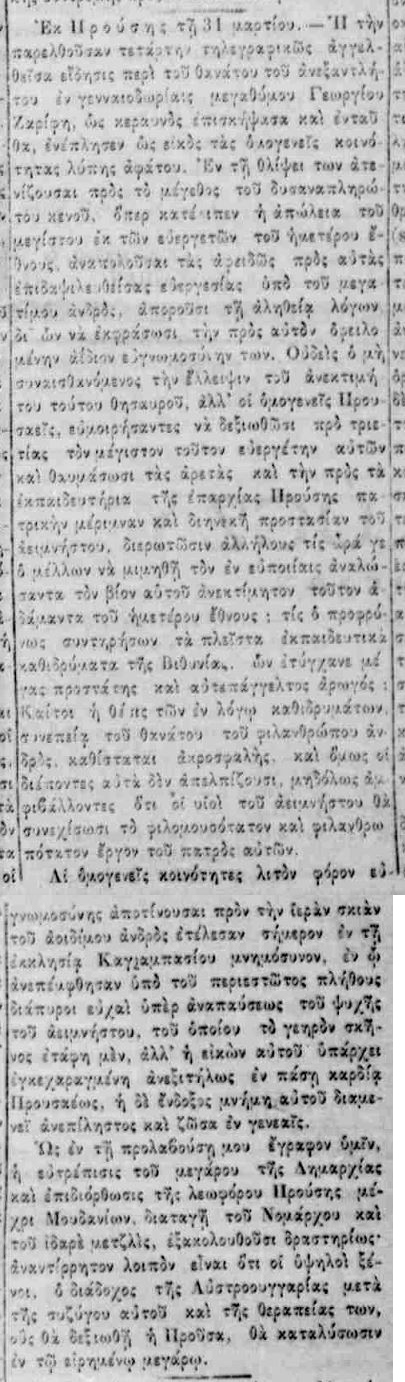 Ἐκ Προύσης τῇ 31 μαρτίου. — Ἡ τὴν
παρελθοῦσαν τετάρτην τηλεγραφικῶς ἀγγελ-
θεῖσα εἴδησις περὶ τοῦ θανάτου τοῦ ἀνεξαντλή-
του ἐν γενναιοδωρίαις μεγαθύμου Γεωργίου
Ζαρίφη, ὡς κεραυνὸς ἐπισκήψασα καὶ ἐνταῦ
θα, ἐνέπλησεν ὡς εἰκὸς τὰς ὁμογενεῖς κοινό-
τητας λύπης ἀφάτου. Ἐν τῇ θλίψει των ἀτε-
νίζουσαι πρὸς τὸ μέγεθος τοῦ δυσαναπληρώ-
του κενοῦ, ὅπερ κατέλιπεν ἡ ἀπώλεια τοῦ
μεγίστου ἐκ τῶν εὐεργετῶν τοῦ ἡμετέρου ἔ-
θνους, ἀναπολοῦσαι τὰς ἀφειδῶς πρὸς αὐτὰς
ἐπιδαψιλευθείσας εὐεργεσίας ὑπὸ τοῦ μεγα
τίμου ἀνδρός, ἀποροῦσι τῇ ἀληθείᾳ λόγων
δι' ὧν νὰ ἐκφράσωσι τὴν πρὸς αὐτὸν ὀφειλο
μένην ἀΐδιον εὐγνωμοσύνην των. Οὐδεὶς ὁ μὴ
συναισθανόμενος τὴν ἔλλειψιν τοῦ ἀνεκτιμή
του τούτου θησαυροῦ, ἀλλ' οἱ ὁμογενεῖς Πρου-
σαεῖς, εὐμοιρήσαντες νὰ δεξιωθῶσι πρὸ τριε-
τίας τὸν μέγιστον τοῦτον εὐεργέτην αὐτῶν
καὶ θαυμάσωσι τὰς ἀρετὰς καὶ τὴν πρὸς τὰ
ἐκπαιδευτήρια τῆς ἐπαρχίας Προύσης πα-
τρικὴν μέριμναν καὶ διηνεκῆ προστασίαν τοῦ
ἀειμνήστου, διερωτῶσιν ἀλλήλους τίς ἆρά γε
ὁ μέλλων νὰ μιμηθῇ τὸν ἐν εὐποιίαις ἀναλώ-
σαντα τὸν βίον αὐτοῦ ἀνεκτίμητον τοῦτον ἀ-
δάμαντα τοῦ ἡμετέρου ἔθνους ; τίς ὁ προφρό-
νως συντηρήσων τὰ πλεῖστα ἐκπαιδευτικὰ
καθιδρύματα τῆς Βιθυνίας, ὧν ἐτύγχανε μέ
γας προστάτης καὶ αὐτεπάγγελτος ἀρωγός ;
Καίτοι ἡ θέσις τῶν ἐν λόγῳ καθιδρυμάτων,
συνεπείᾳ τοῦ θανάτου τοῦ φιλανθρώπου ἀν-
δρός, καθίσταται ἀκροσφαλής, καὶ ὅμως οἱ
διέποντες αὐτὰ δὲν ἀπελπίζουσι, μηδόλως ἀμ-
φιβάλλοντες ὅτι οἱ υἱοὶ τοῦ ἀειμνήστου θὰ
συνεχίσωσι τὸ φιλομουσότατον καὶ φιλανθρω
πότατον ἔργον τοῦ πατρὸς αὐτῶν.
Αἱ ὁμογενεῖς κοινότητες λιτὸν φόρον εὐ-
γνωμοσύνης ἀποτίνουσαι πρὸν τὴν ἱερὰν σκιὰν
τοῦ ἀοιδίμου ἀνδρὸς ἐτέλεσαν σήμερον ἐν τῇ
ἐκκλησίᾳ Καγιαμπασίου μνημόσυνον, ἐν ᾧ
ἀνεπέμφθησαν ὑπὸ τοῦ περιεστῶτος πλήθους
διάπυροι εὐχαὶ ὑπὲρ ἀναπαύσεως τοῦ ψυχῆς
τοῦ ἀειμνήστου, τοῦ ὁποίου τὸ γεηρὸν σκῆ-
νος ἐτάφη μὲν, ἀλλ' ἡ εἰκὼν αὐτοῦ ὑπάρχει
ἐγκεχαραγμένη ἀνεξιτήλως ἐν πάσῃ καρδίᾳ
Προυσαέως, ἡ δὲ ἔνδοξος μνήμη αὐτοῦ διαμε-
νεῖ ἀνεπίληστος καὶ ζῶσα ἐν γενεαῖς.
Ὡς ἐν τῇ προλαβούσῃ μου ἔγραφον ὑμῖν,
ἡ εὐτρέπισις τοῦ μεγάρου τῆς Δημαρχίας
καὶ ἐπιδιόρθωσις τῆς λεωφόρου Προύσης μέ-
χρι Μουδανίων, διαταγῇ τοῦ Νομάρχου καὶ
τοῦ ἰδαρὲ μετζλὶς, ἐξακολουθοῦσι δραστηρίως·
ἀναντίρρητον λοιπὸν εἶναι ὅτι οἱ ὑψηλοὶ ξέ-
νοι, ὁ διάδοχος τῆς Αὐστροουγγαρίας μετὰ
τῆς συζύγου αὐτοῦ καὶ τῆς θεραπείας των,
οὓς θὰ δεξιωθῇ ἡ Προῦσα, θὰ καταλύσωσιν
ἐν τῷ εἰρημένῳ μεγάρῳ.